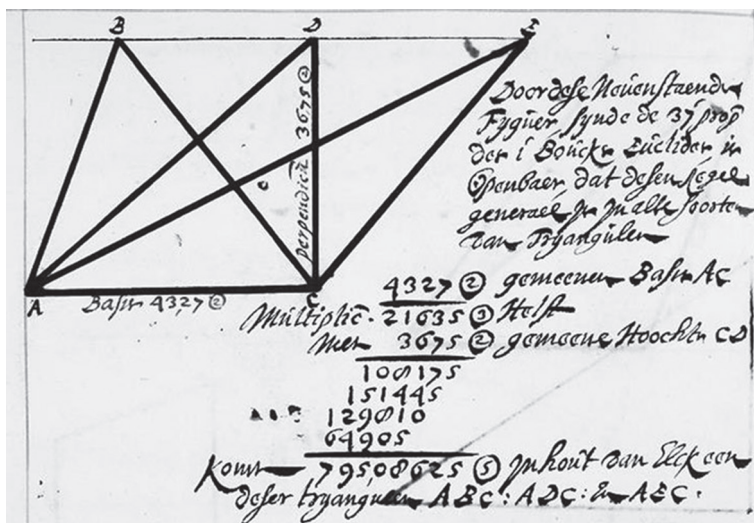 B D E
Perpendick 3675 ②
Door dese Nevenstaende
Fyguer synde de 37 prop
der i Bouckx Euclides is
Openbaer dat desen Regel
generael is in alle soorten
van Tryangulen
A Basis 4327 ② C
4327 ② gemeenen Basis AC
Multiplic. 21635 ③ Helft
Met 3675 ② gemeene Hoochte CD
108175
151445
129810
64905
Komt 79508625 ⑤ Inhout van Elck een
deser tryangulen ABC : ADC : En AEC .